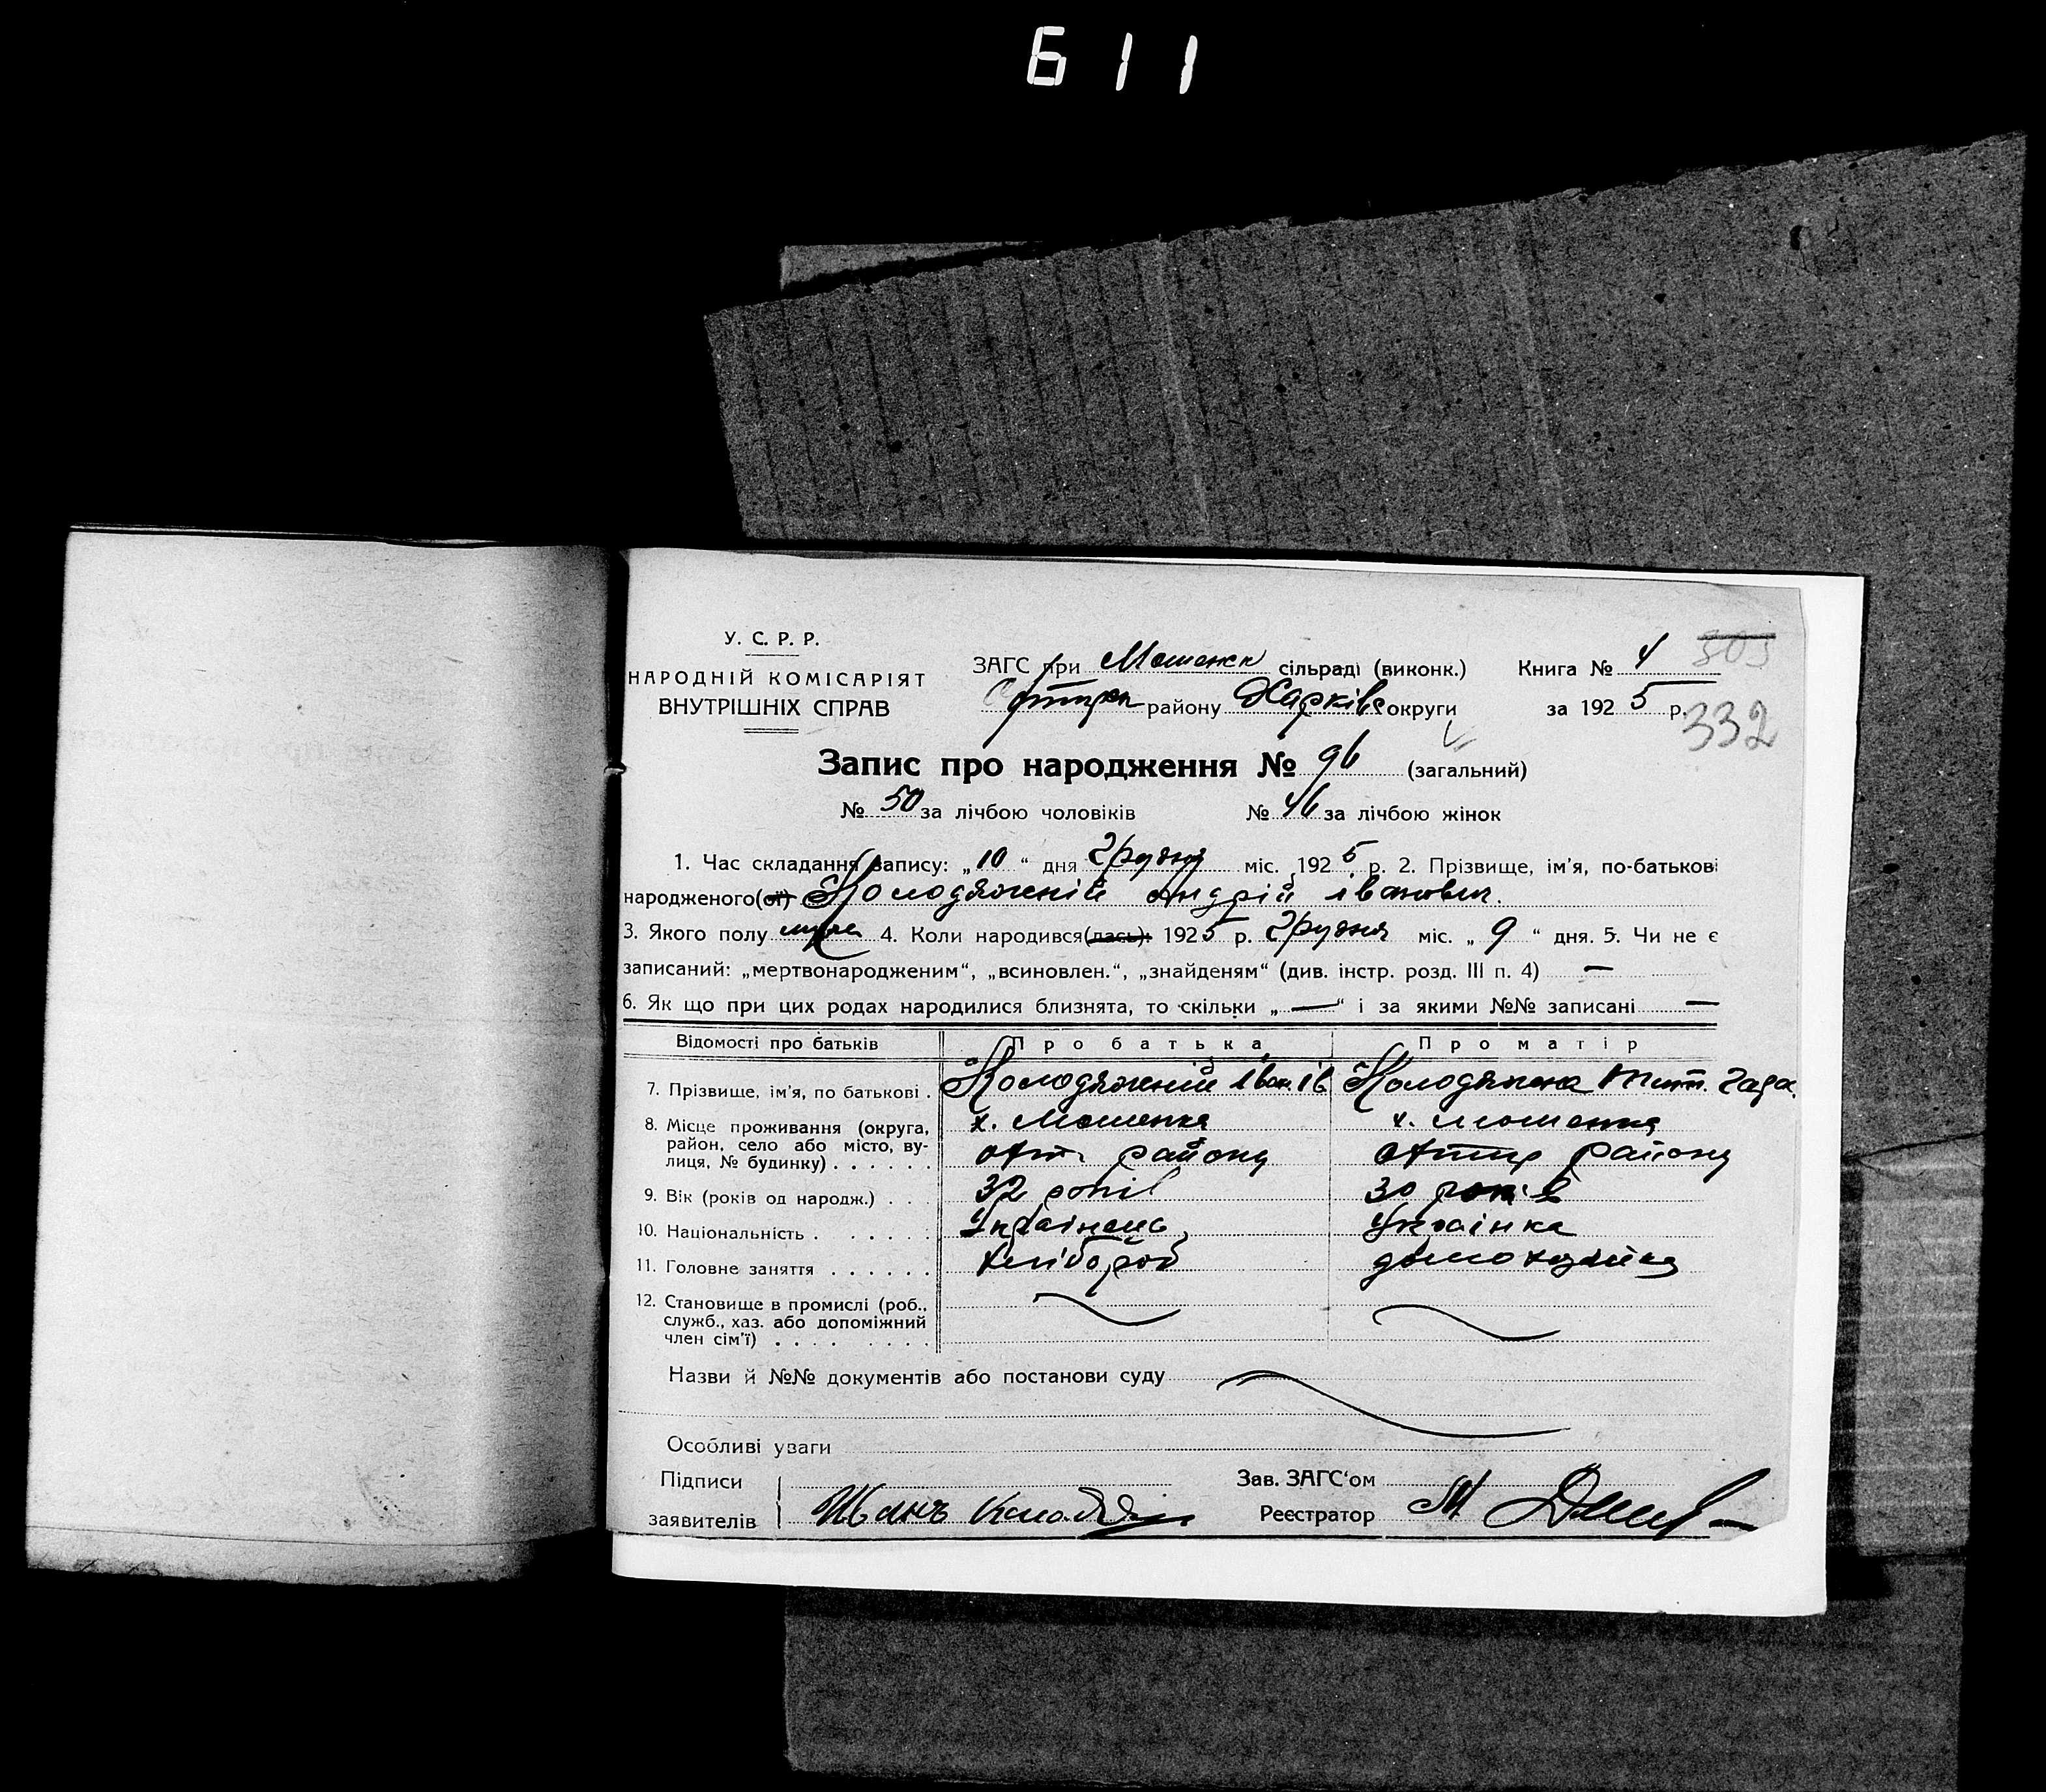 611
У. С. Р. Р.
НАРОДНІЙ КОМІСАРІЯТ
ВНУТРІШНІХ СПРАВ
ЗАГС при Мошенк сільраді (виконк.) Книга № 4
району Харківс округи за 1925 р.
332
Запис про народження № 96 (загальний)
№ 50 за лічбою чоловіків № 46 за лічбою жінок
1. Час складання запису: „10“ дня Грудня міс. 1925 р. 2. Прізвище, ім'я, по-батькові
народженого(ої) Колодяжний андрій іванович.
3. Якого полу 4. Коли народився(лась): 1925 р. Грудня міс. „9“ дня. 5. Чи не є
записаний: „мертвонародженим“, „всиновлен.“, „знайденям“ (див. інстр. розд. III п. 4) —
6. Як що при цих родах народилися близнята, то скільки „—“ і за якими №№ записані —
Відомості про батьків Про батька Про матір
7. Прізвище, ім'я, по батькові . Колодяжний Іван. Ів Колодяжна
8. Місце проживання (округа, х. Мошенка х. мошенка
район, село або місто, ву- району району
лиця, № будинку) . . . . . .
9. Вік (років од народж.) . . . 32 років 30 років
10. Національність . . . . . . Українець Українка
11. Головне заняття . . . . . . хлібороб домохозяйка
12. Становище в промислі (роб.,
служб., хаз. або допоміжний
член сім'ї) . . . . . . . .
Назви й №№ документів або постанови суду
Особливі уваги
Підписи Зав. ЗАГС'ом
заявителів Иванъ Реєстратор